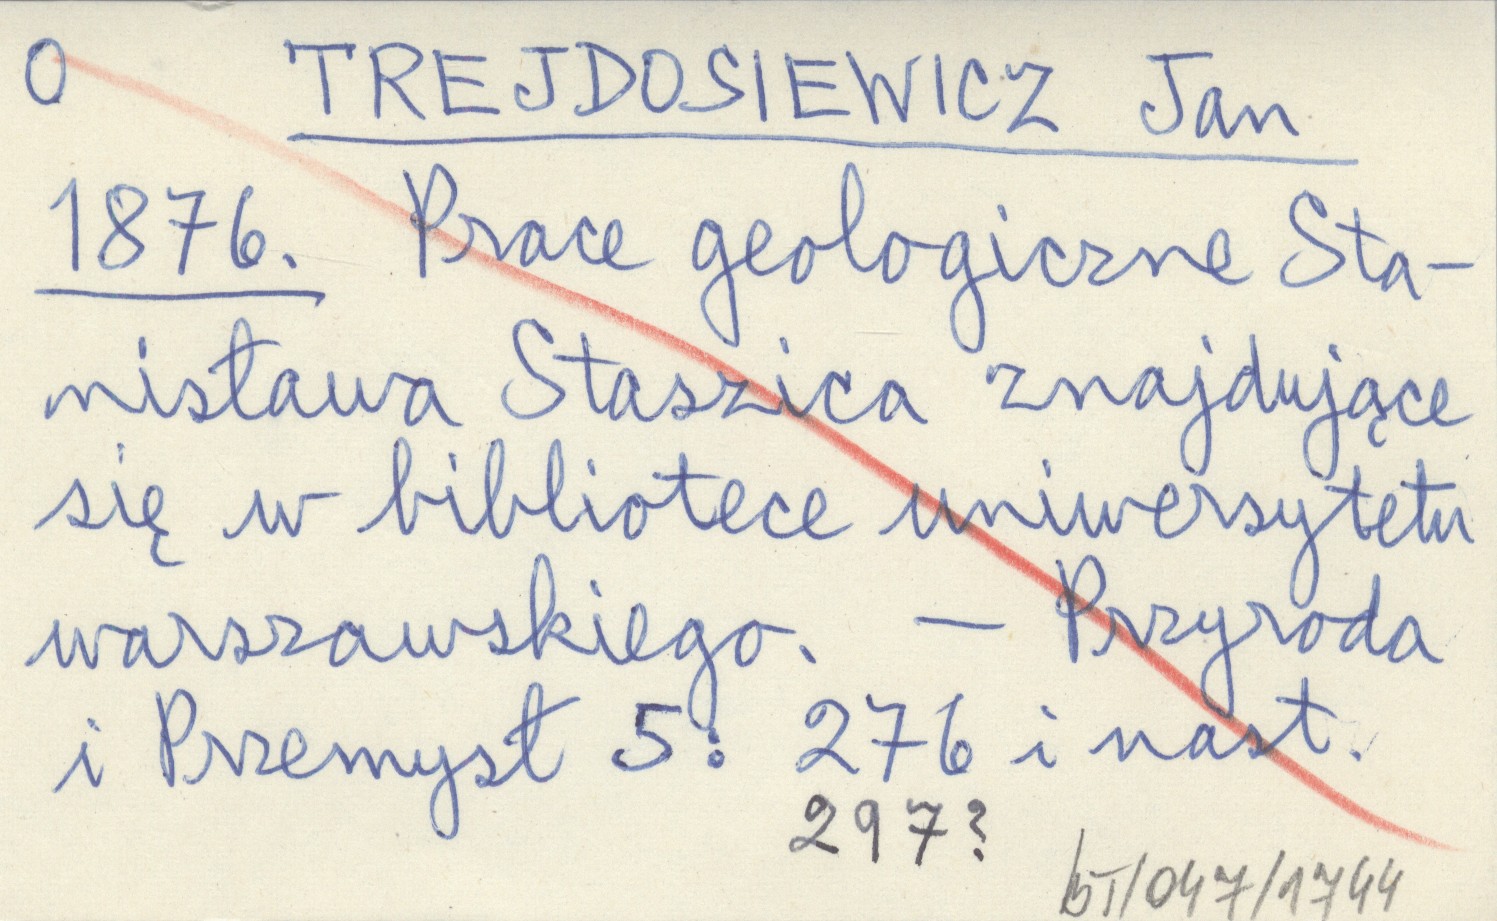 O TREJDOSIEWICZ Jan
1876. Prace geologiczne Sta-
nisława Staszica znajdujące
się w bibliotece uniwersytetu
warszawskiego. — Przyroda
i Przemysł 5: 276 i nast.
297?
bT/047/1744